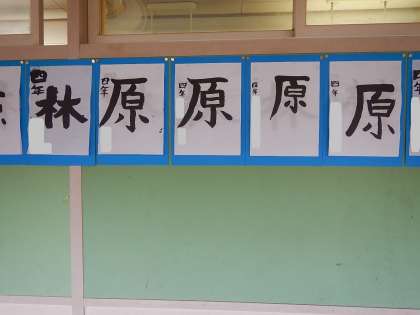 四年
林
四年
原
四年
原
四年
原
四年
原
四年